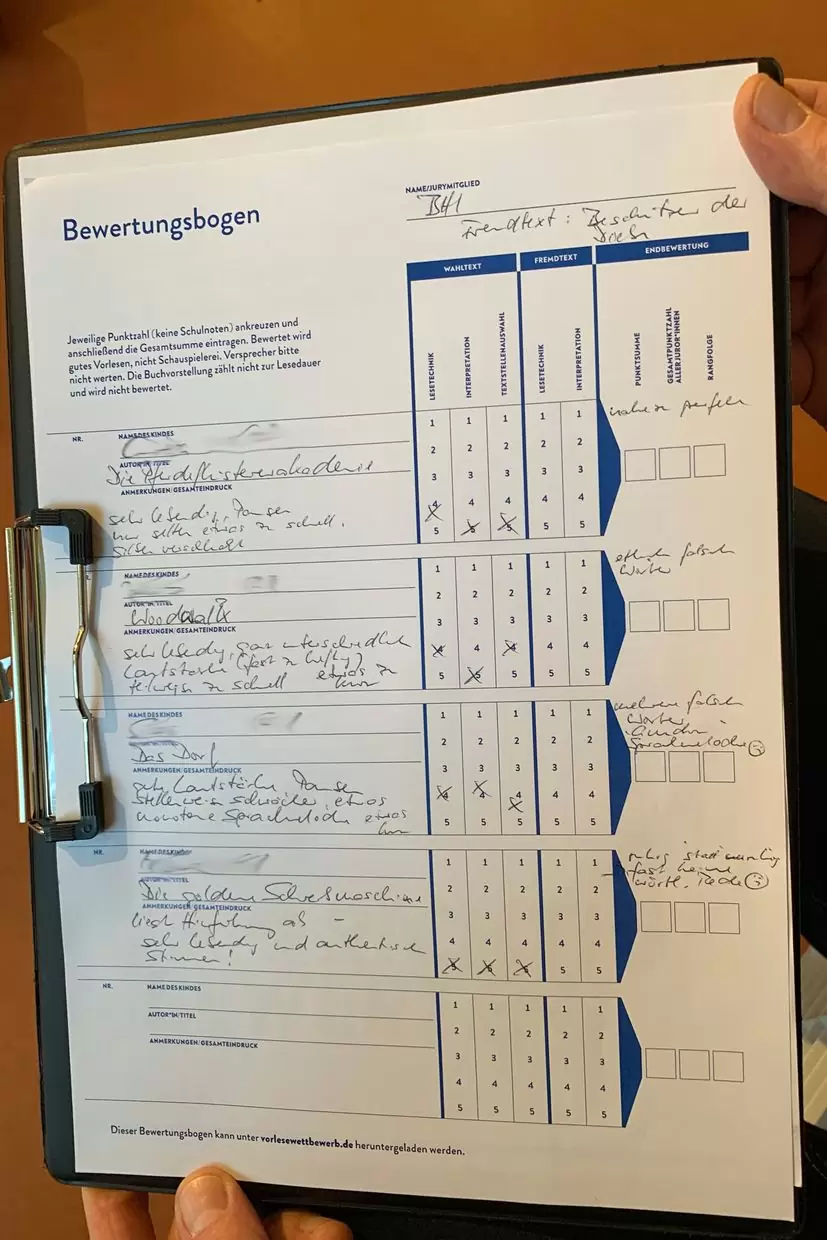 Bewertungsbogen
NAME/JURYMITGLIED
BH1
Fremdtext: Beschützer der
Diebe
Jeweilige Punktzahl (keine Schulnoten) ankreuzen und
anschließend die Gesamtsumme eintragen. Bewertet wird
gutes Vorlesen, nicht Schauspielerei. Versprecher bitte
nicht werten. Die Buchvorstellung zählt nicht zur Lesedauer
und wird nicht bewertet.
WAHLTEXT FREMDTEXT ENDBEWERTUNG
LESETECHNIK INTERPRETATION TEXTSTELLENAUSWAHL LESETECHNIK INTERPRETATION PUNKTSUMME GESAMTPUNKTZAHL ALLER JUROR*INNEN RANGFOLGE
NR. NAME DES KINDES
AUTOR*IN/TITEL
Die Pferdeflüsterakademie
ANMERKUNGEN/GESAMTEINDRUCK
sehr lebendig, Pausen
nur selten etwas zu schnell.
Silben verschluckt
1 1 1 1 1
2 2 2 2 2
3 3 3 3 3
4 4 4 4 4
5 5 5 5 5
nahezu perfekt
NAME DES KINDES
AUTOR*IN/TITEL
Woodwalk
ANMERKUNGEN/GESAMTEINDRUCK
sehr lebendig, gar unterschiedlich
Lautstärke (fast zu heftig)
teilweise zu schnell etwas zu
kurz
1 1 1 1 1
2 2 2 2 2
3 3 3 3 3
4 4 4 4 4
5 5 5 5 5
etliche falsche
Wörter
NAME DES KINDES
AUTOR*IN/TITEL
Das Dorf
ANMERKUNGEN/GESAMTEINDRUCK
gute Lautstärke Pausen
stellenweise schwächer, etwas
monotone Sprachmelodie etwas
kurz
1 1 1 1 1
2 2 2 2 2
3 3 3 3 3
4 4 4 4 4
5 5 5 5 5
mehrere falsche
Wörter
Sprachmelodie
NR. NAME DES KINDES
AUTOR*IN/TITEL
Die goldene Schreibmaschine
ANMERKUNGEN/GESAMTEINDRUCK
liest Hinführung ab –
sehr lebendig und authentische
Stimmen!
1 1 1 1 1
2 2 2 2 2
3 3 3 3 3
4 4 4 4 4
5 5 5 5 5
ruhig
fast keine
wörtl. Rede
NR. NAME DES KINDES
AUTOR*IN/TITEL
ANMERKUNGEN/GESAMTEINDRUCK
1 1 1 1 1
2 2 2 2 2
3 3 3 3 3
4 4 4 4 4
5 5 5 5 5
Dieser Bewertungsbogen kann unter vorlesewettbewerb.de heruntergeladen werden.